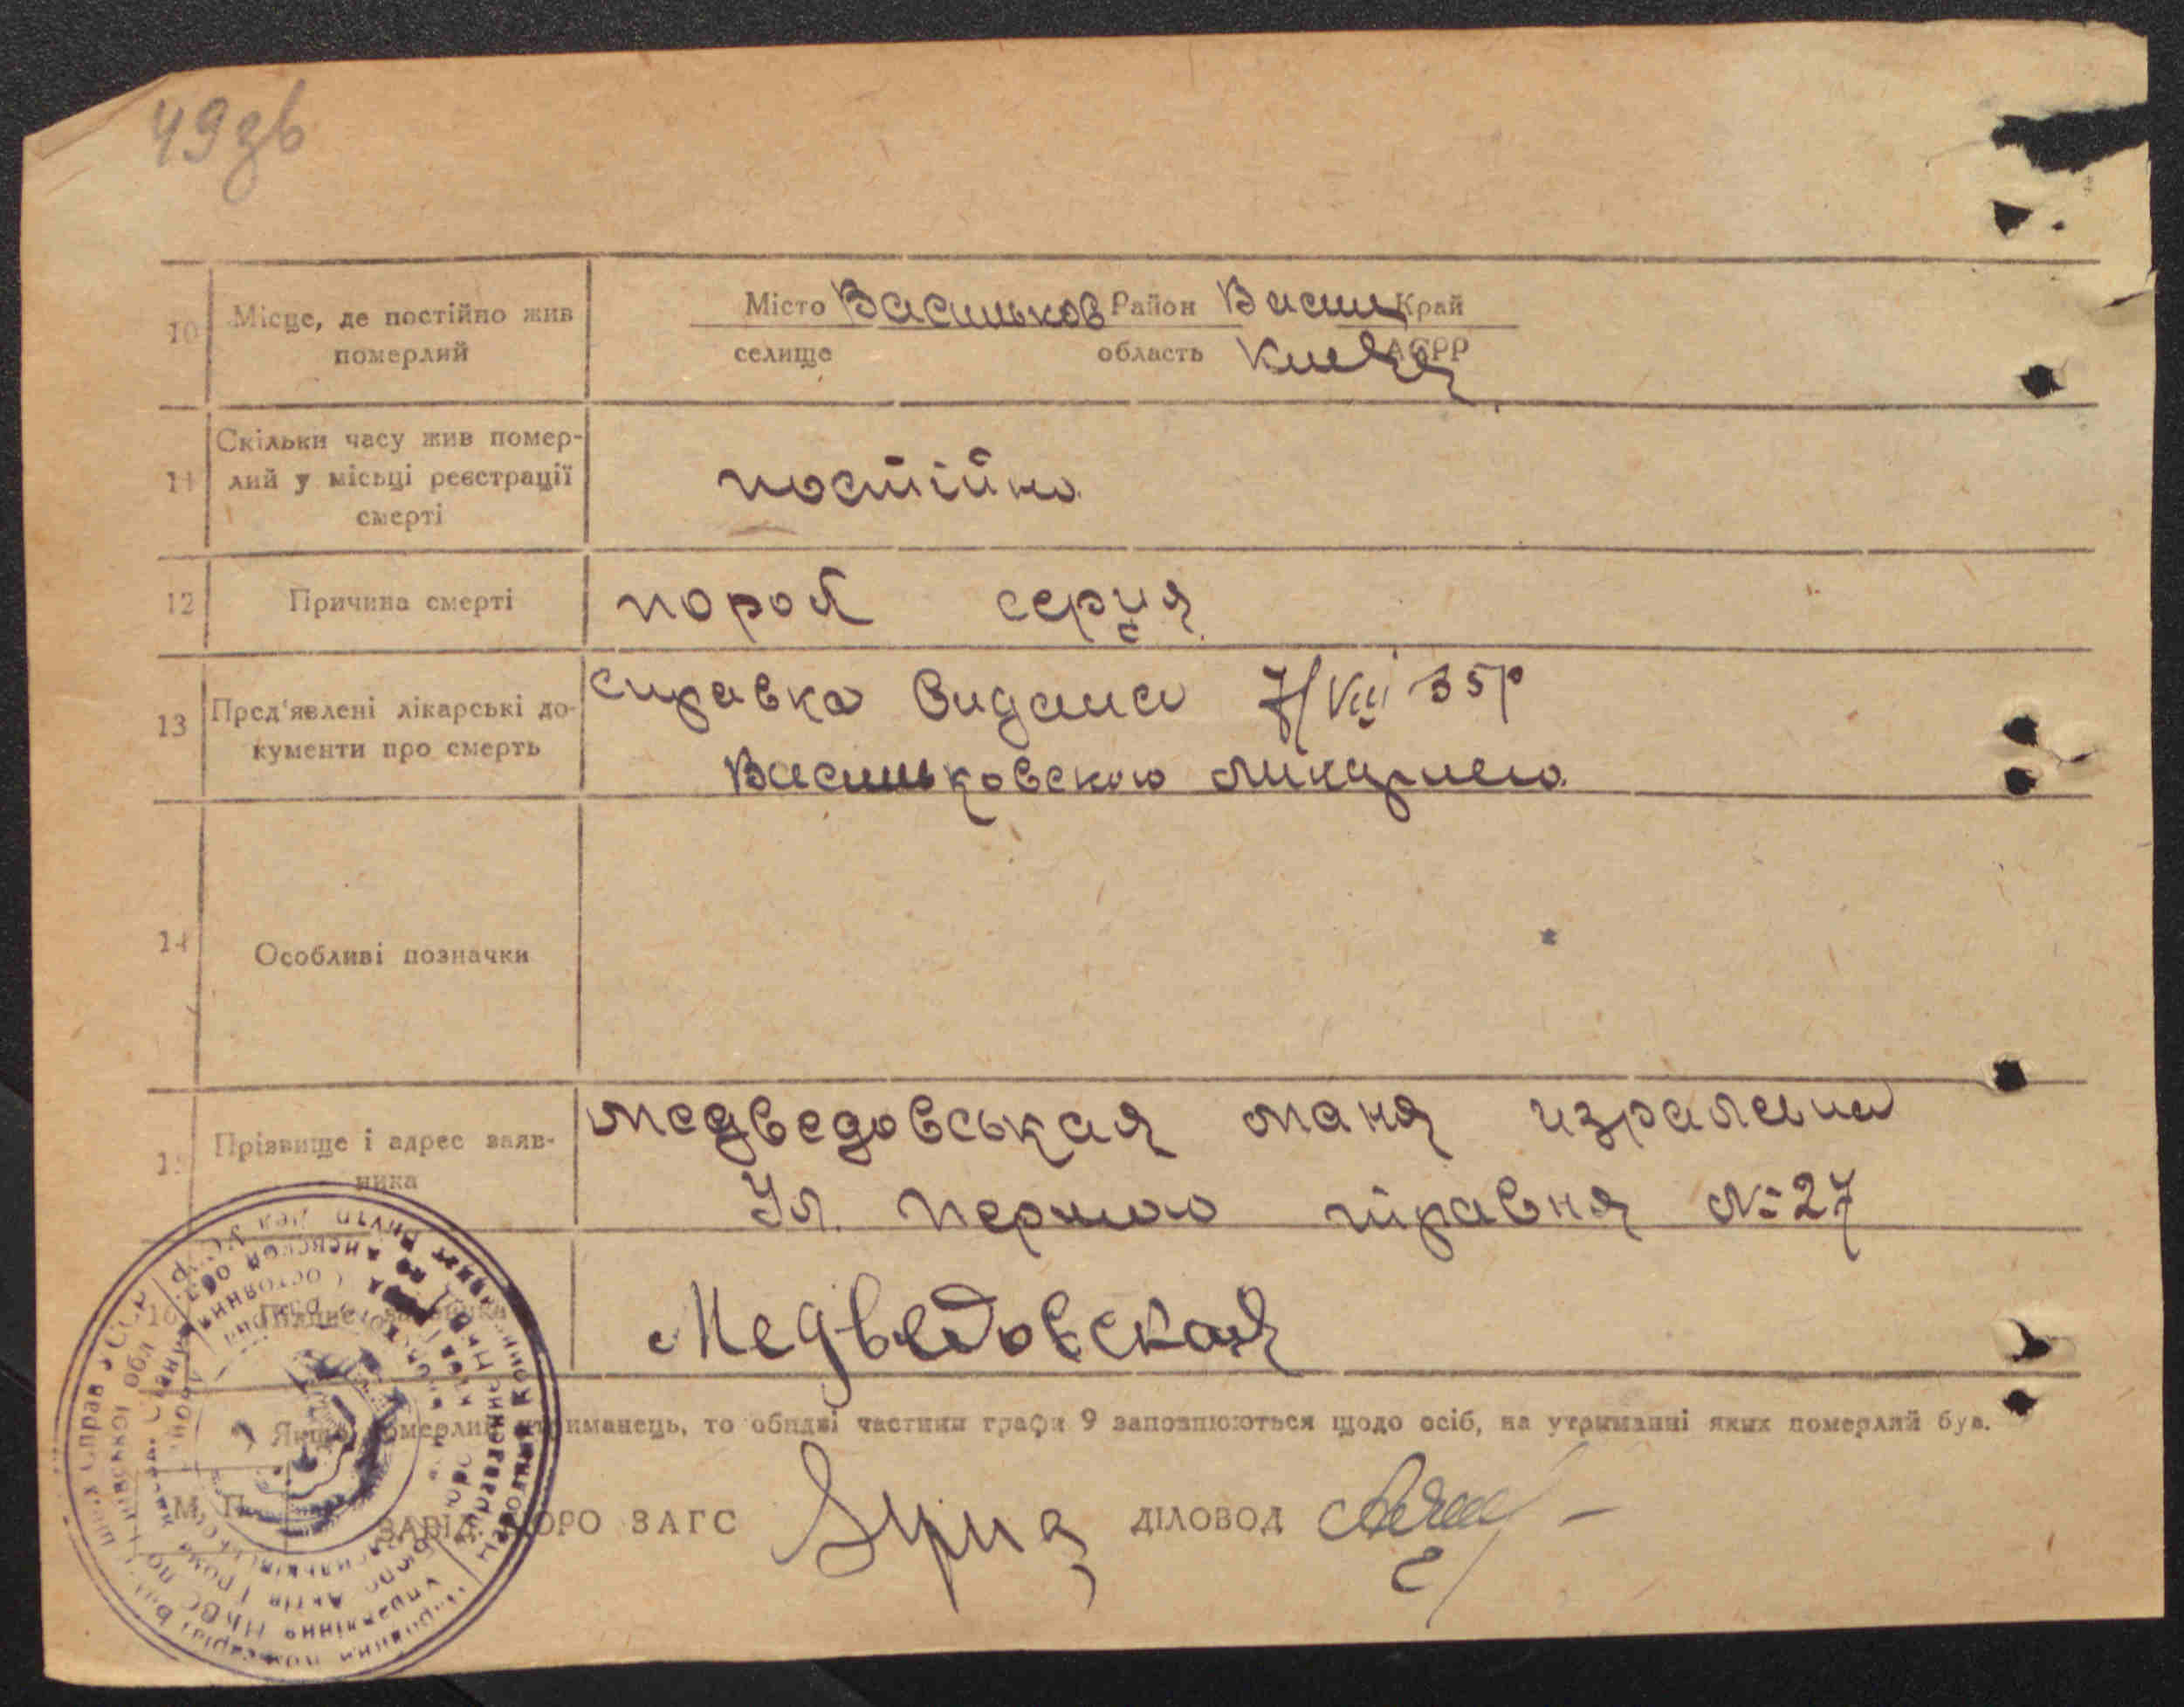 49зв
10 Місце, де постійно жив померлий
Місто Васильков Район Васил Край
селище область Київ АСРР
11 Скільки часу жив помер-
лий у місці реєстрації
смерті
постійно
12 Причина смерті
порок серця
13 Пред'явлені лікарські до-
кументи про смерть
справка видана 7/VIII 35р
Васильковскою ликарнею
14 Особливі позначки
15 Прізвище і адрес заяв-
ника
Медведовськая Маня Израл
Ул. Першого травня №27
16 Підпис заявника
Медведовская
Якщо померлий утриманець, то обидві частини графи 9 заповнюються щодо осіб, на утриманні яких померлий був.
М. П.
ЗАВІД. БЮРО ЗАГС ДІЛОВОД